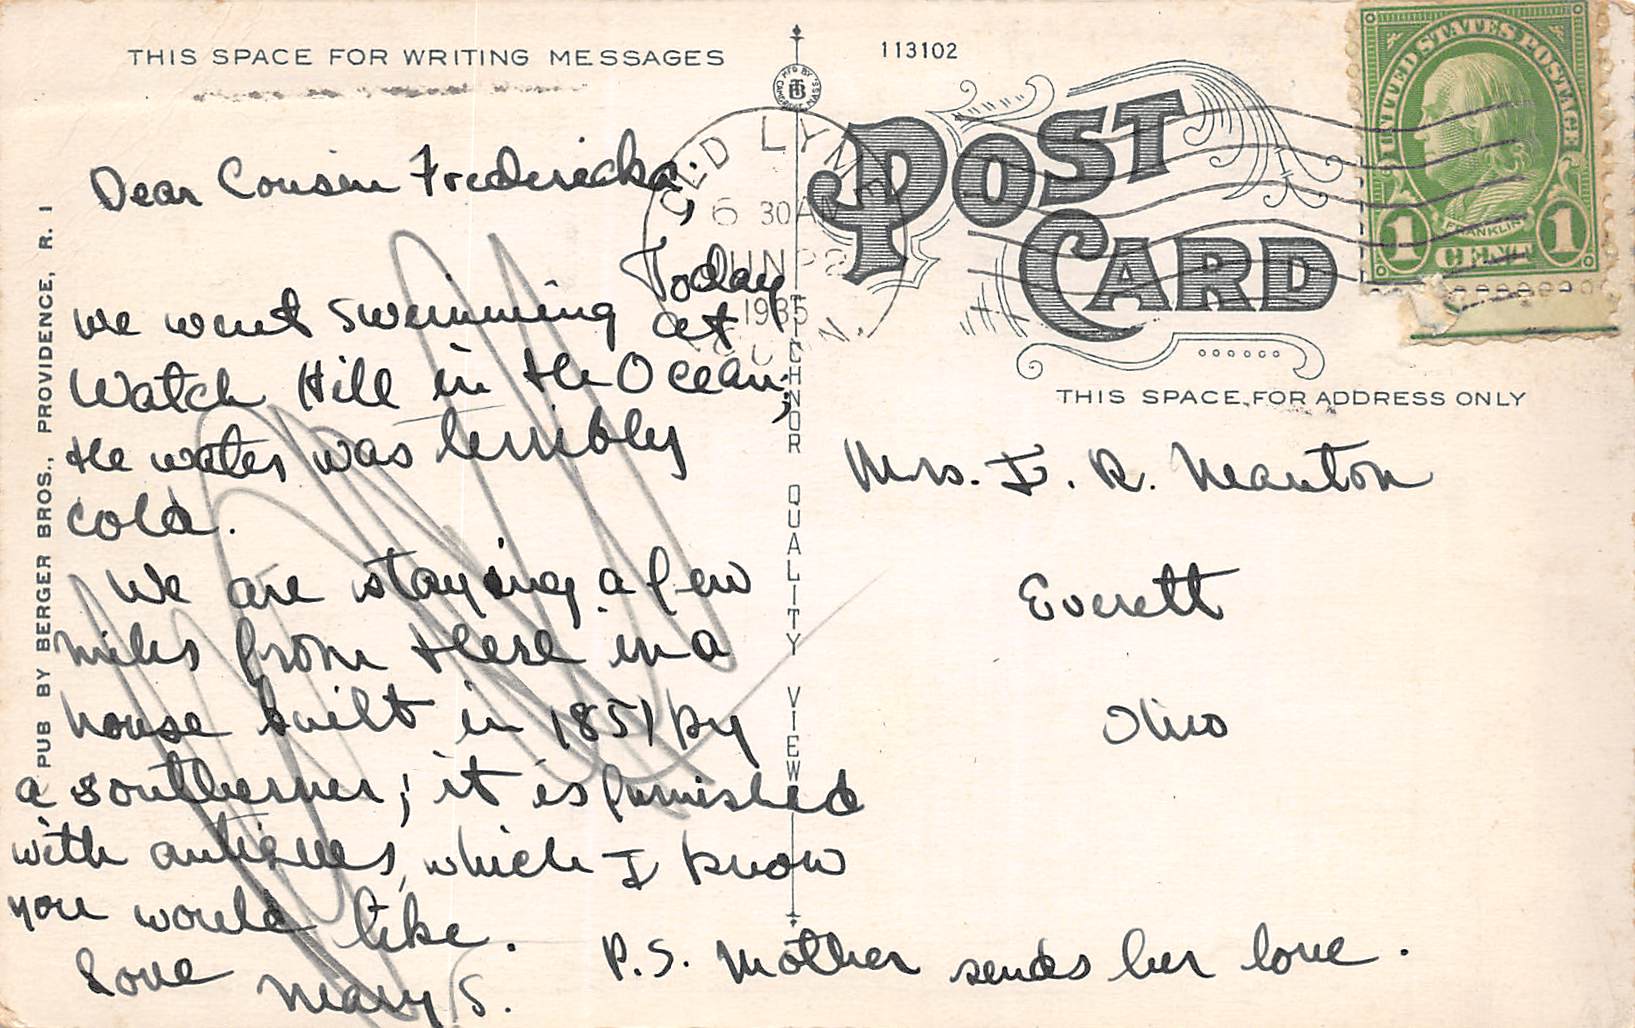 THIS SPACE FOR WRITING MESSAGES
Dear Cousin Fredericka,
Today
we went swimming at
Watch Hill in the Ocean;
the water was terribly
cold.
We are staying a few
miles from there in a
house built in 1851 by
a southerner; it is furnished
with antiques, which I know
you would like.
Love Mary S.
P.S. Mother sends her love.
PUB BY BERGER BROS., PROVIDENCE, R. I
TICHNOR QUALITY VIEW
113102
POST
CARD
OLD LYME
6 30 AM
JUN 22
1935
CONN.
UNITED STATES POSTAGE
FRANKLIN
1 CENT 1
THIS SPACE FOR ADDRESS ONLY
Mrs. I. R. Manton
Everett
Ohio